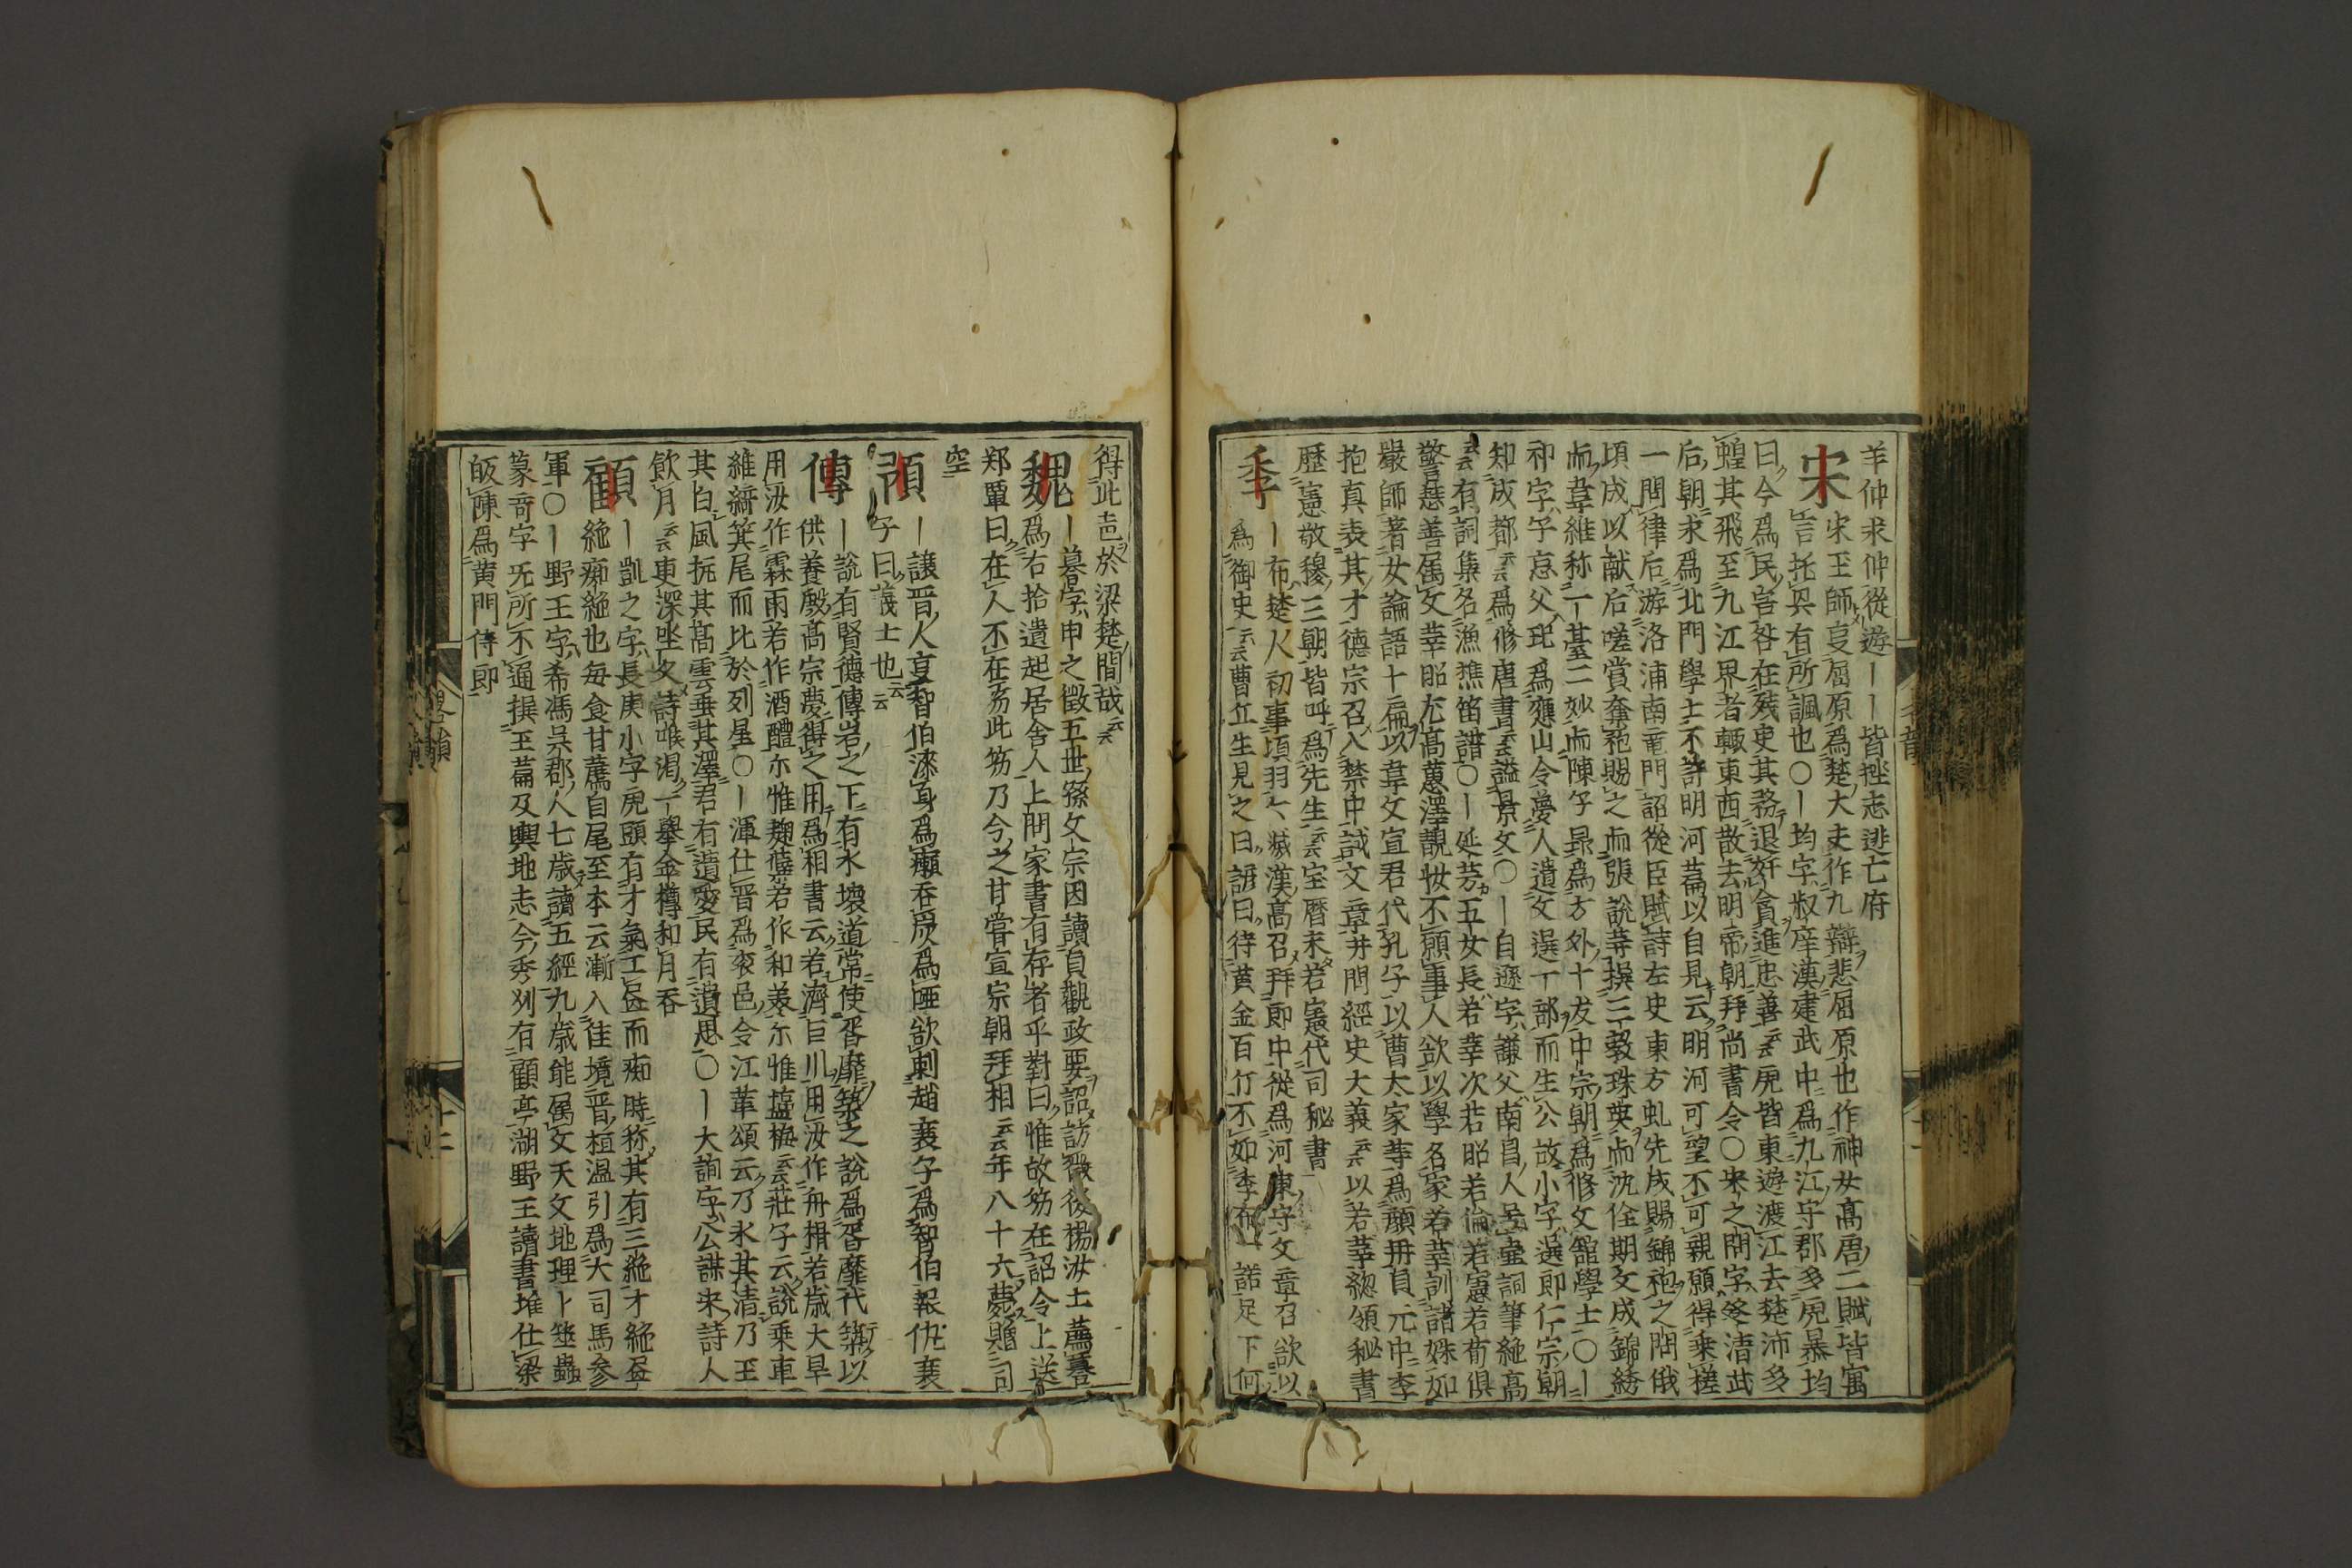 羊仲求仲從遊――皆挫志逃亡府
宋 宋玉師亨屈原爲楚大夫作九辯悲屈原也作神女高唐二賦皆寓
言托㒷有所諷也○―均字叔庠漢建武中爲九江守郡多虎暴均
曰今爲民害咎在残吏其務退奸貪進忠善云云虎皆東遊渡江去楚沛多
蝗其飛至九江界者輙東西散去明帝朝拜尚書令○宋之問字延清武
后朝求爲北門學士不許明河萹以自見云明河可望不可親願得乘槎
一問津后游洛浦南竜門詔從臣賦詩左史東方虬先成賜錦袍之問俄
頃成以献后嗟賞奪袍賜之而張說等撰三敎珠英而沈佺期文成錦綉
而韋維称一基二妙而陳子昴爲方外十友中宗朝爲修文舘學士○―
祁字子京父玘爲應山令夢人遺文選一部而生公故小字選郎仁宗朝
知成都云云爲修唐書云云謚景文○―自遜字謙父南昌人号壷詞筆絶高
云云有詞集名漁樵笛譜○―延芬五女長若莘次若昭若倫若憲若荀俱
警慧善属文莘昭尤高蕙澤靚妆不願事人欲以學名家若莘訓諸姝如
嚴師著女論語十扁以韋文宣君代孔子以曹太家等爲顏冊貞元中李
抱真表其才德宗召入禁中試文章并問經史大義云云以若莘緫領秘書
歷憲敬穆三朝皆呼爲先生云云宝暦末若憲代司秘書
季 ―布楚人初事頃羽〻滅漢高召拜郎中從爲河東守文章召欲以
爲御史云云曹丘生見之曰諺曰待黄金百斤不如季布一諾足下何
得此声於梁楚間哉云云
魏 ―謩字申之徵五世孫文宗因讀貞觀政要詔訪徵後楊汝士薦謩
爲右拾遺起居舍人上問家書有存者乎對曰惟故笏在詔令上送
郑覃曰在人不在笏此笏乃今之甘棠宣宗朝拜相云云年八十六薨贈司
空
預 ―讓晋人亨智伯漆身爲癩呑炭爲啞欲刺趙襄子爲智伯報仇襄
子曰義士也云云
傳 ―說有賢德傳岩之下有水壞道常使胥靡築之說爲胥靡代築以
供養殷高宗夢得之用爲相書云若濟巨川用汝作舟楫若歲大旱
用汝作霖雨若作酒醴尓惟麹蘖若作和羹尓惟塩梅云云莊子云說乘車
維綪箕尾而比於列星○―渾仕晋爲安邑令江革頌云乃氷其清乃玉
其白風抚其髙雲垂其澤君有遺愛民有遺思○―大詢字公謀宋詩人
飲月云云更深坐久詩喉渴一擧金樽和月呑
顧 ―凱之字長庚小字虎頭有才氣工𦘕而痴時称其有三絶才絶𦘕
絶痴絶也毎食甘蔗自尾至本云漸入佳境晋桓温引爲大司馬参
軍○―野王字希馮呉郡人七歳讀五經九歳能属文天文地理卜筮蟲
篆奇字旡所不通撰王萹及輿地志今秀州有顧亭湖野王讀書堆仕梁
皈陳爲黄門侍郎